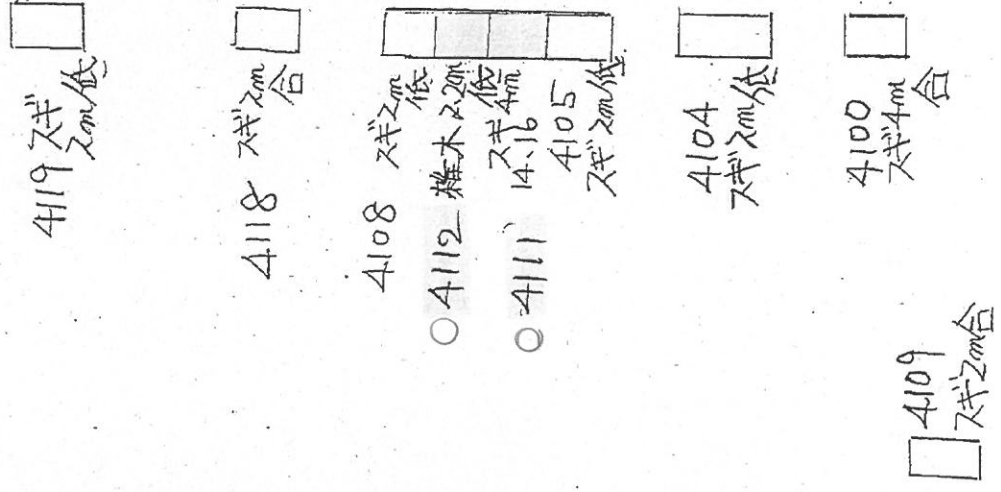 4119 スギ
2m低
4118 スギ2m
合
4108 スギ2m
低
○4112 雑木2.2m
低
○4111 スギ4m
14.16
4105
スギ2m低
4104
スギ2m低
4100
スギ4m
合
4109
スギ2m合